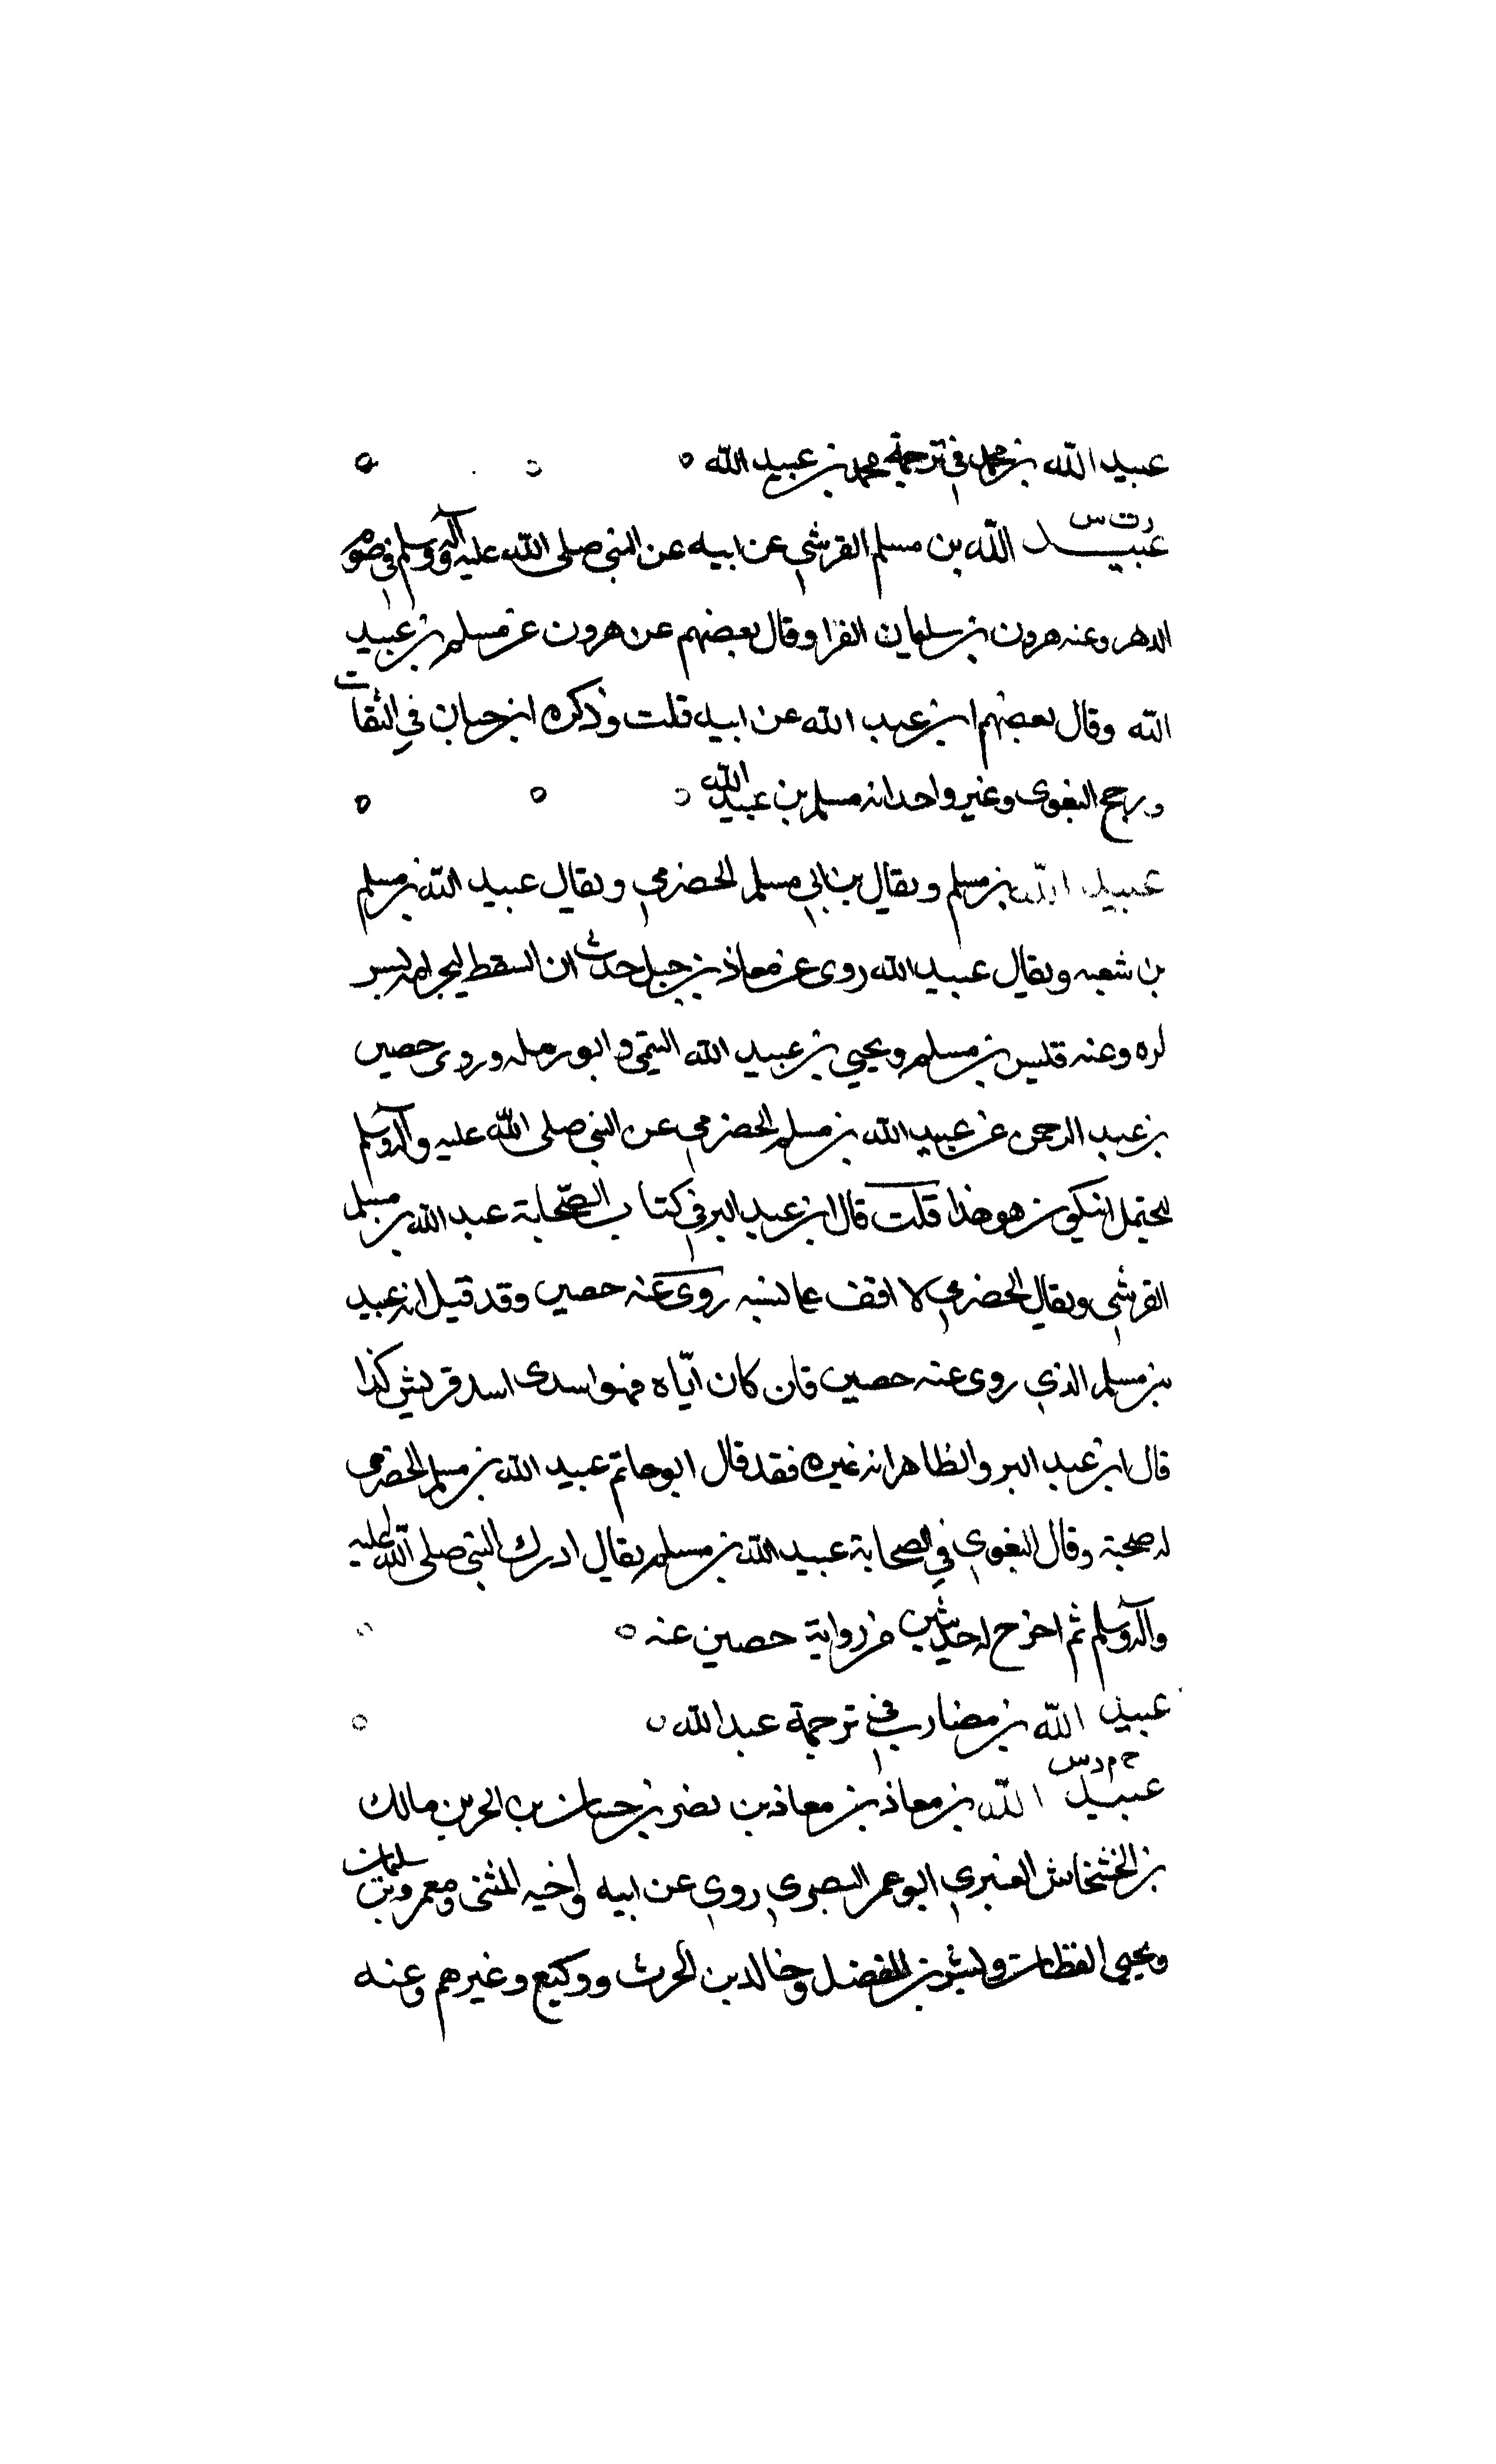 عبيد الله بن محمد في ترجمة محمد بن عبيد الله ه
د ت س
عبيد الله بن مسلم القرشي عن ابيه عن النبي صلى الله عليه وآله وسلم في صوم
الدهر وعنه هرون بن سلمان الفرا وقال بعضهم عن هرون عن مسلم بن عبيد
الله وقال بعضهم ابن عبد الله عن ابيه قلت وذكره ابن حبان في الثقات
ورجح البغوي وغير واحد انه مسلم بن عبيد الله
عبيد الله بن مسلم ويقال بن ابي مسلم الحضرمي ويقال عبيد الله بن مسلم
بن شعبه ويقال عبيد الله روى عن معاذ بن جبل حديث ان السقط ليجر امه بسر
ره وعنه قليس بن مسلم ويحيي بن عبيد الله التيمي وابو رمله وروى حصين
بن عبد الرحمن عن عبيد الله بن مسلم الحضرمي عن النبي صلى الله عليه وآله وسلم
يحتمل ان يكون هو هذا قلت قال ابن عبد البر في كتاب الصحابة عبد الله بن مسلم
القرشي ويقال الحضرمي لا اقف على نسبه روى عنه حصين وقد قيل انه عبيد
بن مسلم الذي روى عنه حصين فان كان اياه فهو اسدى اسد قريش كذا
قال ابن عبد البر والظاهر انه غيره فقد قال ابو حاتم عبيد الله بن مسلم الحضرمي
له صحبة وقال البغوي في الصحابة عبيد الله بن مسلم يقال ادرك النبي صلى الله عليه
وآله وسلم ثم اخرج له حديثين من رواية حصين عنه ه
عبيد الله بن مضارب في ترجمة عبد الله ه
خ م د س
عبيد الله بن معاذ بن معاذ بن نصر بن حسان بن الحر بن مالك
بن الخشخاش العنبري ابو عمر البصري روى عن ابيه واخيه المثنى ومعمر وبن سليمان
ويحيي القطان وبشر بن المفضل وخالد بن الحرث ووكيع وغيرهم وعنه